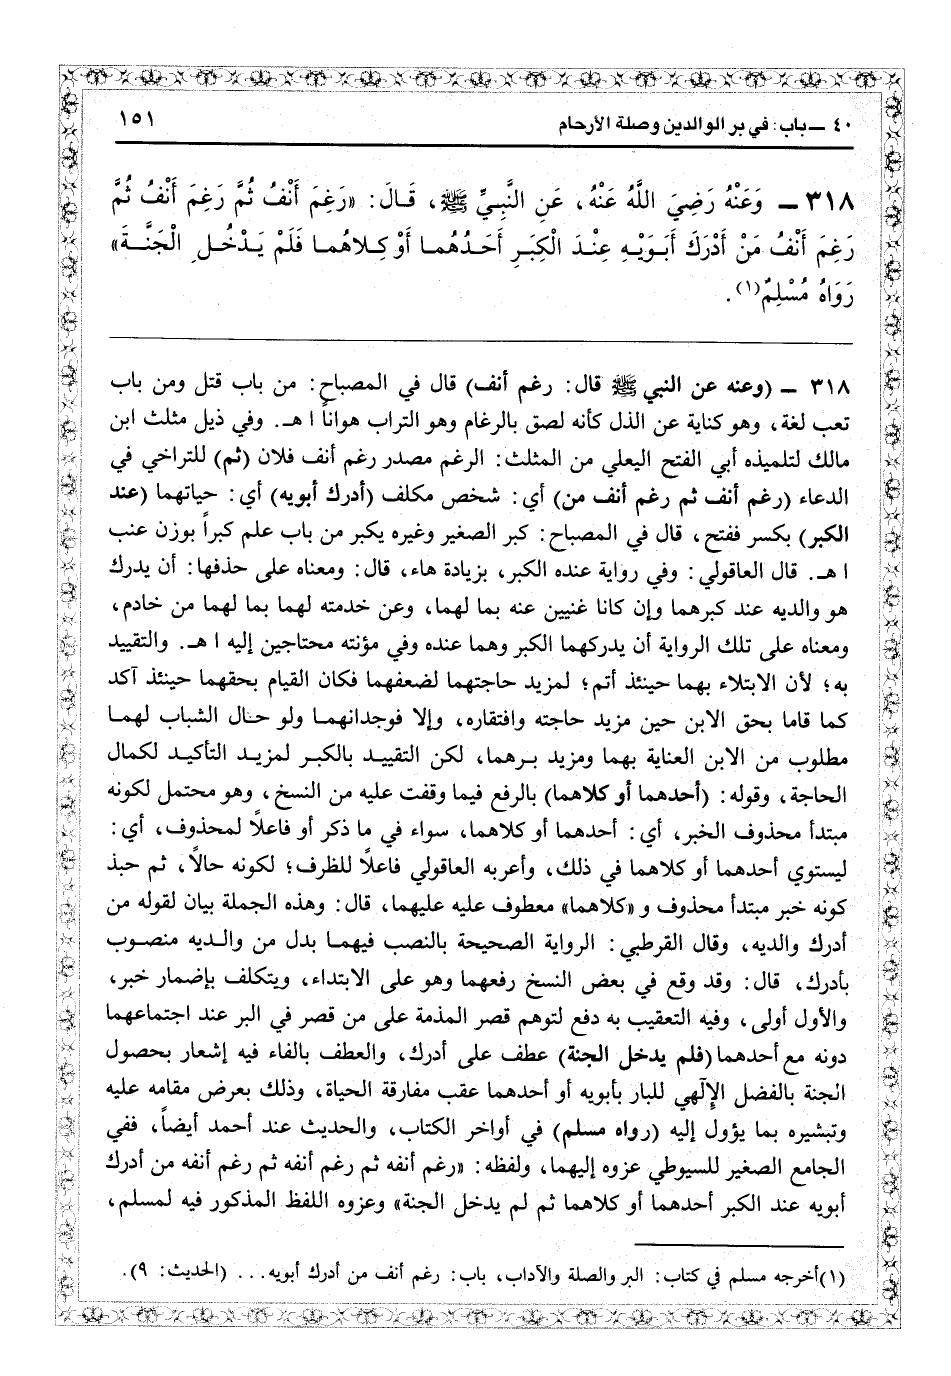 ٤٠ ـ باب: في بر الوالدين وصلة الأرحام ١٥١
٣١٨ ـ وَعَنْهُ رَضِيَ اللَّهُ عَنْهُ، عَنِ النَّبِيِّ ﷺ، قَالَ: «رَغِمَ أَنْفُ ثُمَّ رَغِمَ أَنْفُ ثُمَّ
رَغِمَ أَنْفُ مَنْ أَدْرَكَ أَبَوَيْهِ عِنْدَ الْكِبَرِ أَحَدُهُمَا أَوْ كِلَاهُمَا فَلَمْ يَدْخُلِ الْجَنَّةَ»
رَوَاهُ مُسْلِمٌ(١).
٣١٨ ـ (وعنه عن النبي ﷺ قال: رغم أنف) قال في المصباح: من باب قتل ومن باب
تعب لغة، وهو كناية عن الذل كأنه لصق بالرغام وهو التراب هواناً ا هـ. وفي ذيل مثلث ابن
مالك لتلميذه أبي الفتح اليعلي من المثلث: الرغم مصدر رغم أنف فلان (ثم) للتراخي في
الدعاء (رغم أنف ثم رغم أنف من) أي: شخص مكلف (أدرك أبويه) أي: حياتهما (عند
الكبر) بكسر ففتح، قال في المصباح: كبر الصغير وغيره يكبر من باب علم كبراً بوزن عنب
ا هـ. قال العاقولي: وفي رواية عنده الكبر، بزيادة هاء، قال: ومعناه على حذفها: أن يدرك
هو والديه عند كبرهما وإن كانا غنيين عنه بما لهما، وعن خدمته لهما بما لهما من خادم،
ومعناه على تلك الرواية أن يدركهما الكبر وهما عنده وفي مؤنته محتاجين إليه ا هـ. والتقييد
به؛ لأن الابتلاء بهما حينئذ أتم؛ لمزيد حاجتهما لضعفهما فكان القيام بحقهما حينئذ آكد
كما قاما بحق الابن حين مزيد حاجته وافتقاره، وإلا فوجدانهما ولو حال الشباب لهما
مطلوب من الابن العناية بهما ومزيد برهما، لكن التقييد بالكبر لمزيد التأكيد لكمال
الحاجة، وقوله: (أحدهما أو كلاهما) بالرفع فيما وقفت عليه من النسخ، وهو محتمل لكونه
مبتدأ محذوف الخبر، أي: أحدهما أو كلاهما، سواء في ما ذكر أو فاعلاً لمحذوف، أي:
ليستوي أحدهما أو كلاهما في ذلك، وأعربه العاقولي فاعلاً للظرف؛ لكونه حالاً، ثم حبذ
كونه خبر مبتدأ محذوف و «كلاهما» معطوف عليه عليهما، قال: وهذه الجملة بيان لقوله من
أدرك والديه، وقال القرطبي: الرواية الصحيحة بالنصب فيهما بدل من والديه منصوب
بأدرك، قال: وقد وقع في بعض النسخ رفعهما وهو على الابتداء، ويتكلف بإضمار خبر،
والأول أولى، وفيه التعقيب به دفع لتوهم قصر المذمة على من قصر في البر عند اجتماعهما
دونه مع أحدهما (فلم يدخل الجنة) عطف على أدرك، والعطف بالفاء فيه إشعار بحصول
الجنة بالفضل الإلٰهي للبار بأبويه أو أحدهما عقب مفارقة الحياة، وذلك بعرض مقامه عليه
وتبشيره بما يؤول إليه (رواه مسلم) في أواخر الكتاب، والحديث عند أحمد أيضاً، ففي
الجامع الصغير للسيوطي عزوه إليهما، ولفظه: «رغم أنفه ثم رغم أنفه ثم رغم أنفه من أدرك
أبويه عند الكبر أحدهما أو كلاهما ثم لم يدخل الجنة» وعزوه اللفظ المذكور فيه لمسلم،
(١) أخرجه مسلم في كتاب: البر والصلة والآداب، باب: رغم أنف من أدرك أبويه... (الحديث: ٩).